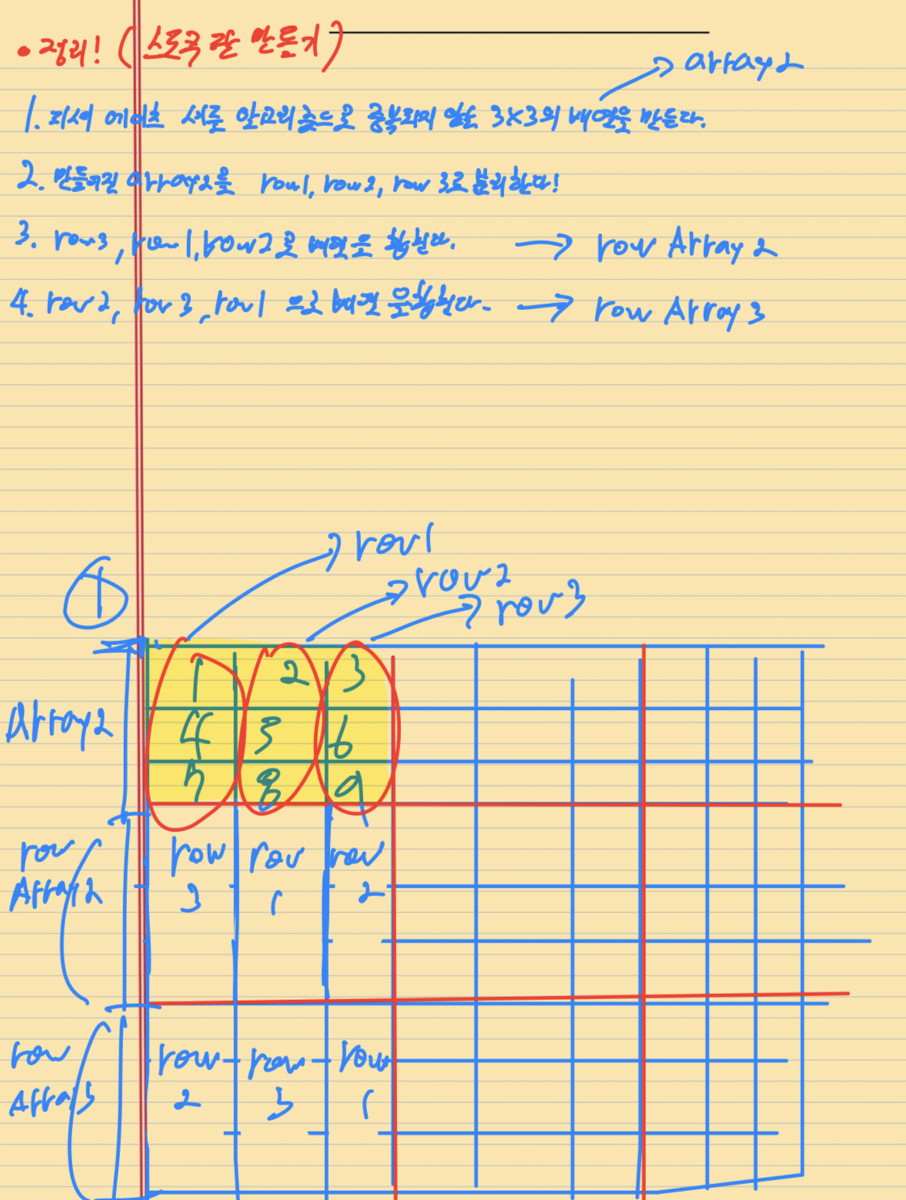 • 정리! (스도쿠 잘 만들기)
array2
1. 피셔 에이츠 셔플 알고리즘으로 중복되지 않는 3×3의 배열을 만든다.
2. 만들어진 array2를 row1, row2, row3로 분리한다!
3. row3, row1, row2로 배열을 합친다. → row Array 2
4. row2, row3, row1 으로 배열을 합친다. → row Array 3
① row1
row2
row3
1 2 3
Array2 4 5 6
7 8 9
row Array2 row 3 row 1 row 2
row Array3 row 2 row 3 row 1